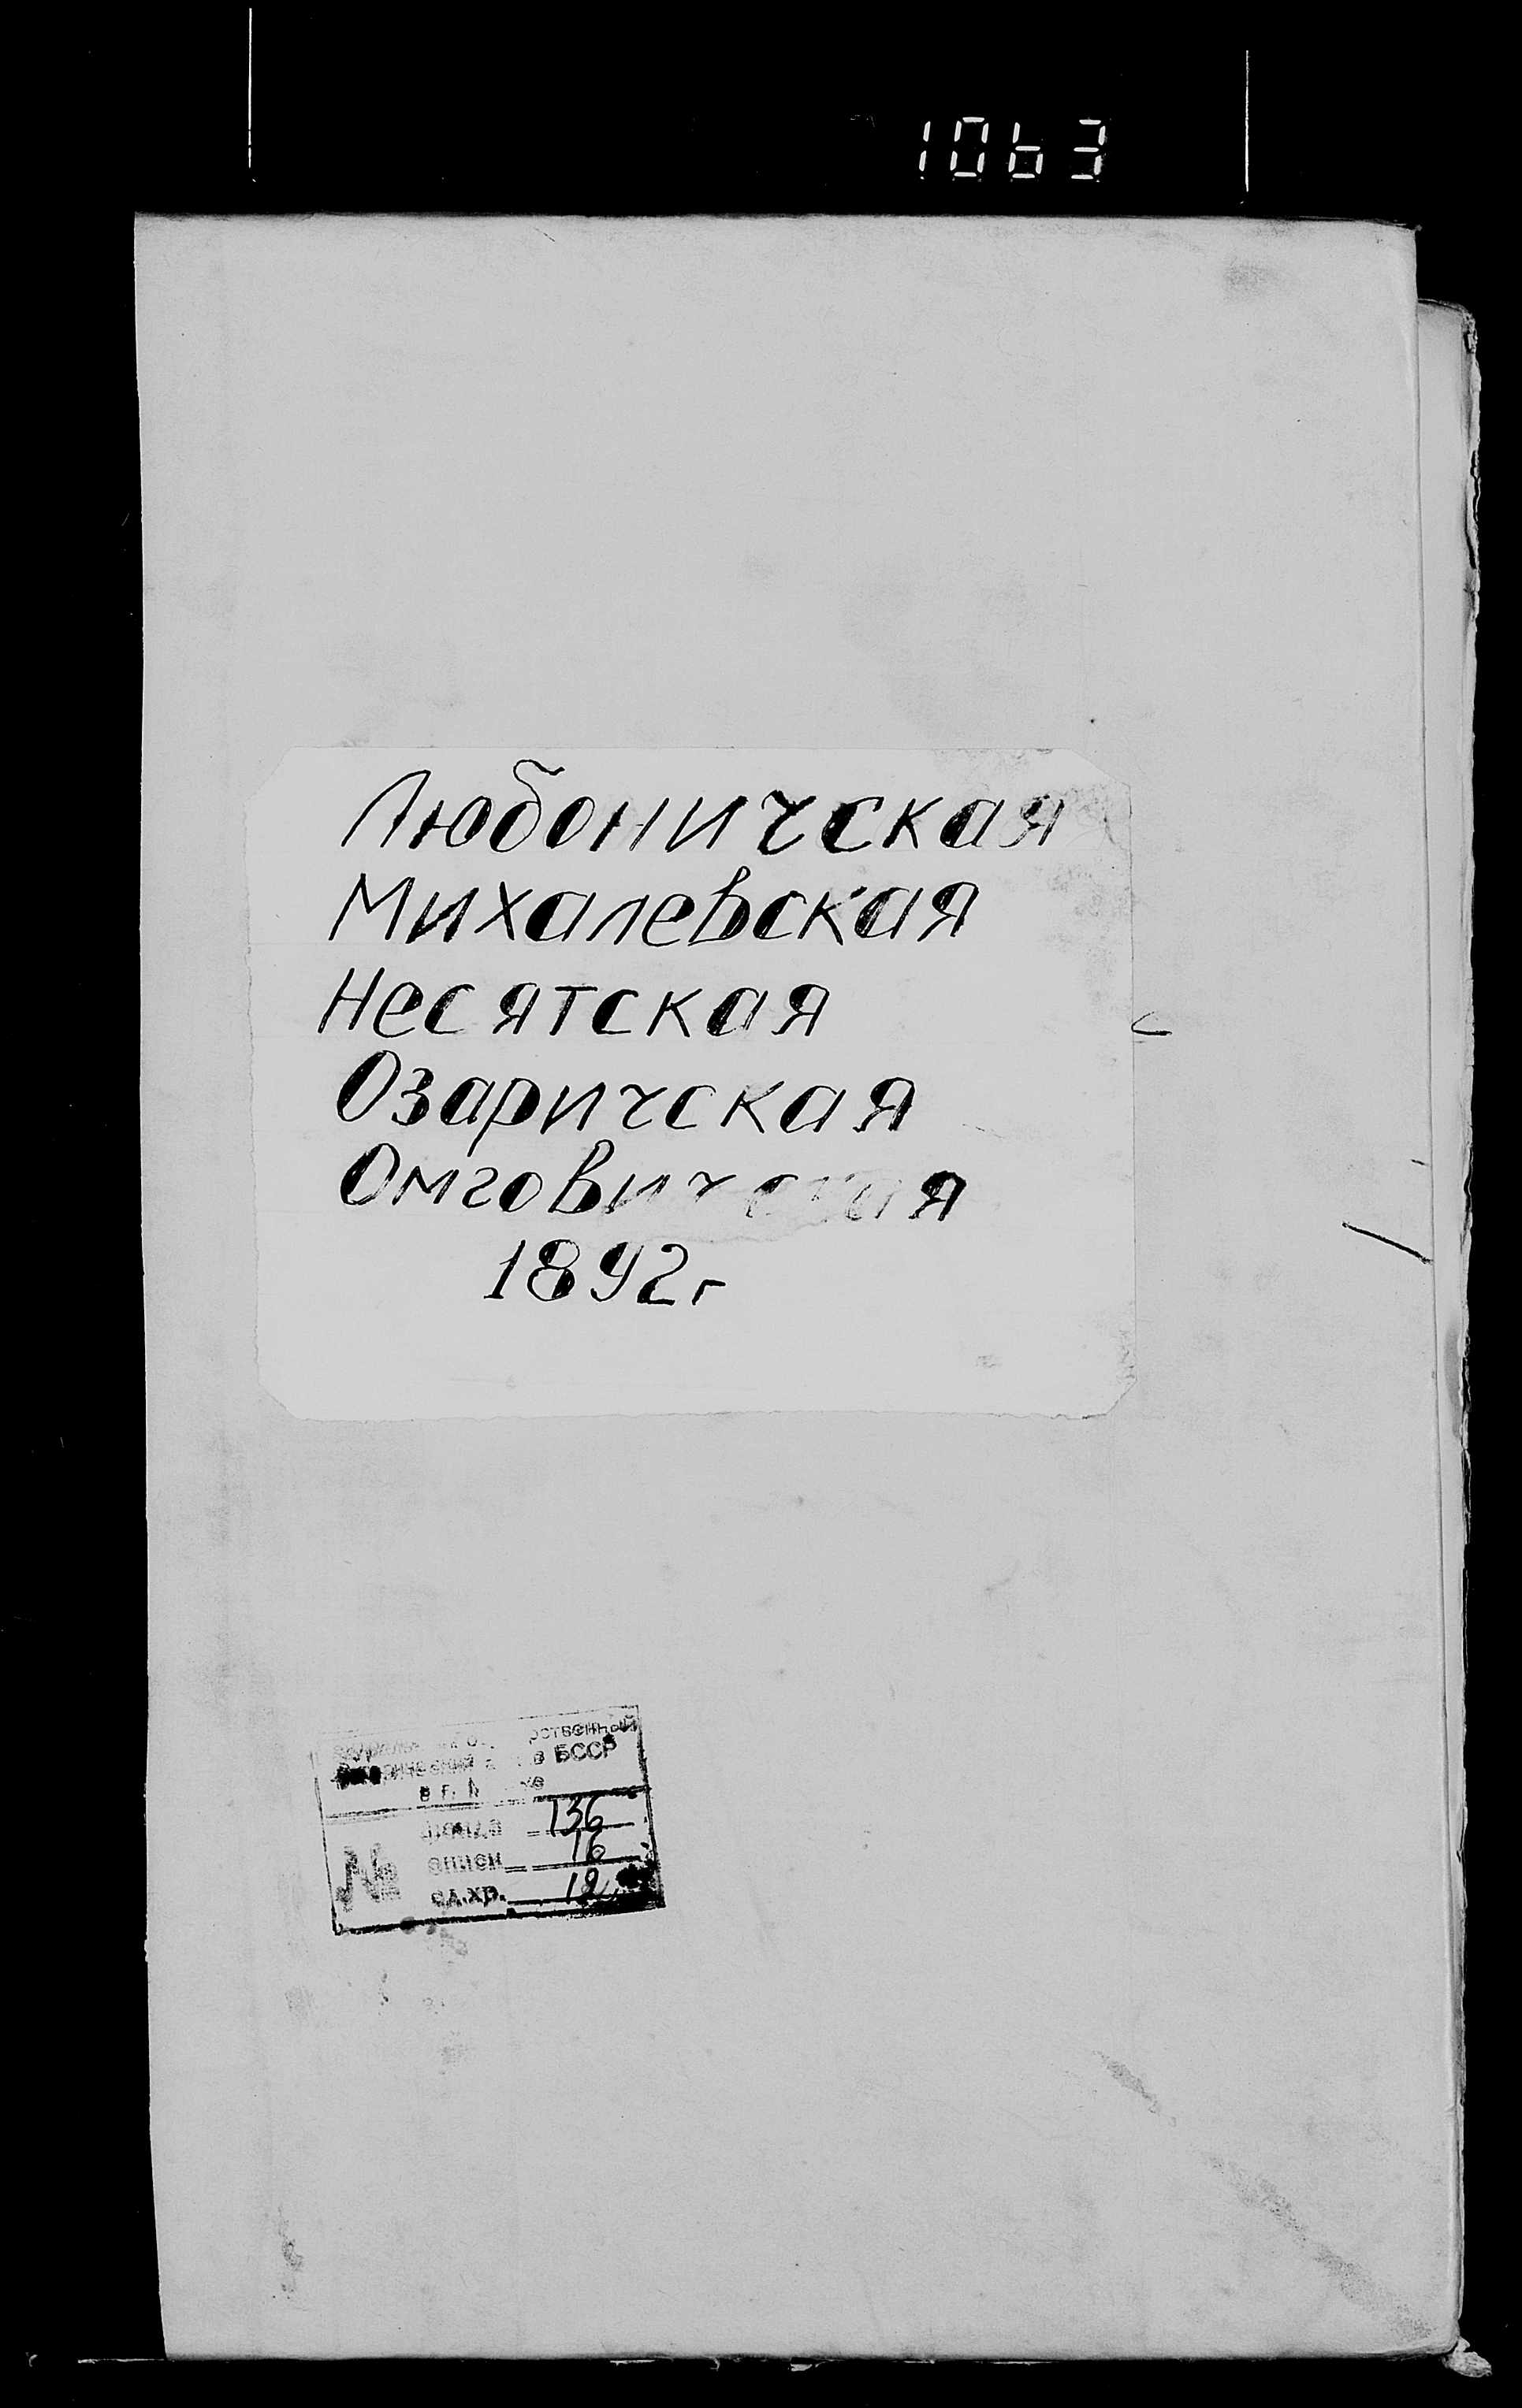 1063
Любоничская
Михалевская
Несятская
Озаричская
Омговичская
1892г
БССР
в г.
№ фонда 136
описи 16
ед.хр. 12